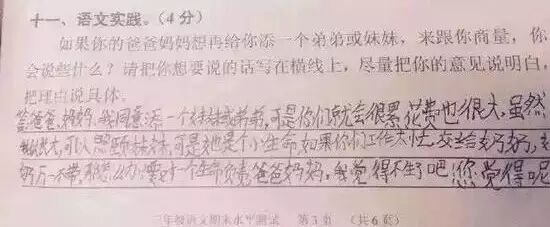 十一、语文实践。(4分)
如果你的爸爸妈妈想再给你添一个弟弟或妹妹，来跟你商量，你
会说些什么？请把你想要说的话写在横线上，尽量把你的意见说明白，
把理由说具体。
答爸爸、妈妈，我同意添一个妹妹或弟弟，可是你们就会很累，花费也很大，虽然
我长大，可以照顾妹妹，可是她是个小生命，如果你们工作太忙，交给奶奶，
奶奶万一不带，那怎么办，要对一个生命负责，爸爸妈妈，我觉得不生了吧，您觉得呢
三年级语文期末水平测试 第5页 (共6页)